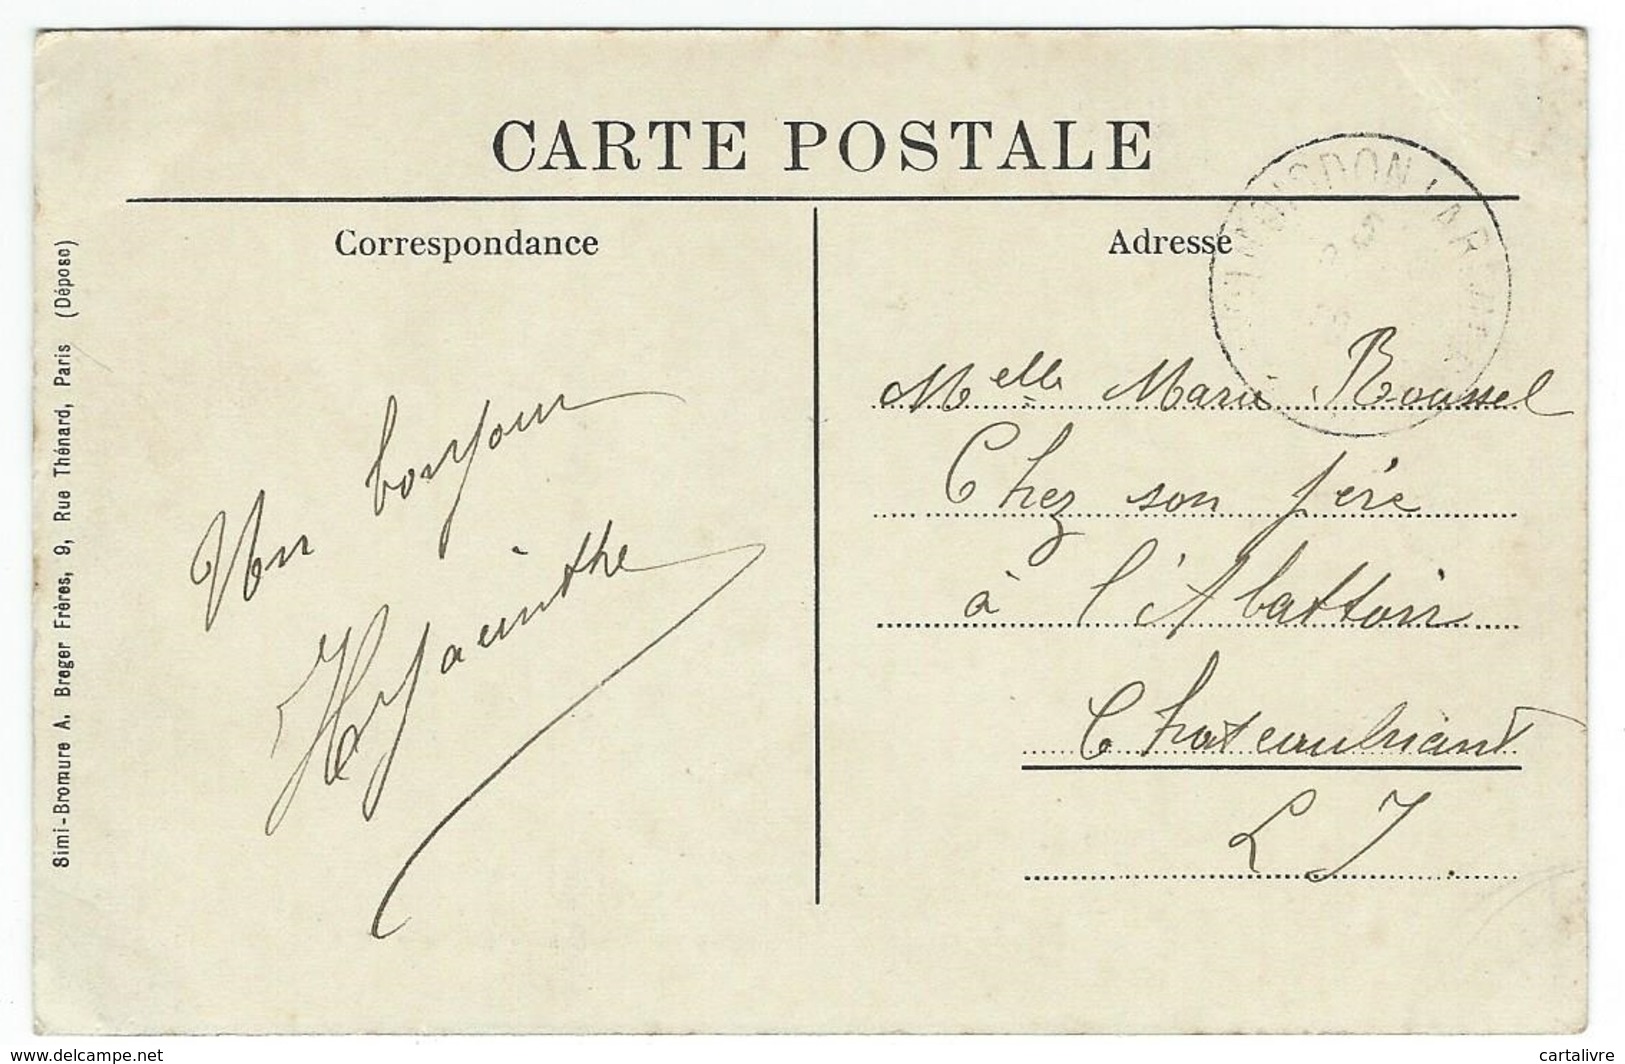 CARTE POSTALE
Correspondance
Adresse
Simi-Bromure A. Breger Frères, 9, Rue Thénard, Paris (Déposé)
Un bonjour
Hyacinthe
Melle Marie Roussel
Chez son père
à l'Abattoir
Chateaubriant
L I
www.delcampe.net
cartalivre